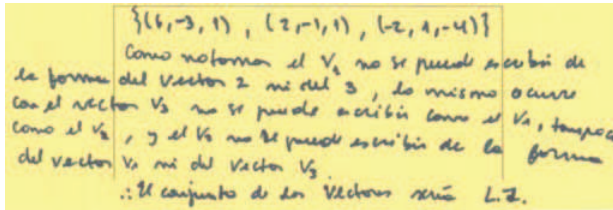 {(6, -3, 1), (2, -1, 1), (-2, 1, -4)}
Como notamos el V₁ no se puede escribir de
la forma del vector 2 ni del 3, lo mismo ocurre
con el vector V₃ no se puede escribir como el V₁, tampoco
como el V₂, y el V₂ no se puede escribir de la forma
del vector V₁ ni del vector V₃
∴ El conjunto de los vectores sería L.I.